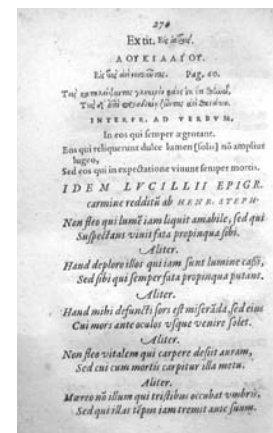 276
Ex tit. Εἰς
ΛΟΥΚΙΛΛΙΟΥ.
Pag. 60.
INTERPR. AD VERBVM.
In eos qui semper ægrotant.
Eos qui reliquerunt dulce lumen (solis) nō ampliùs
lugeo,
Sed eos qui in expectatione viuunt semper mortis.
IDEM LVCILLII EPIGR.
carmine redditū ab HENR. STEPH.
Non fleo qui lumē iam liquit amabile, sed qui
Suspectans viuit fata propinqua sibi.
Aliter.
Haud deploro illos qui iam sunt lumine cassi,
Sed sibi qui semper fata propinqua putant.
Aliter.
Haud mihi defuncti sors est miserāda, sed eius
Cui mors ante oculos vsque venire solet.
Aliter.
Non fleo vitalem qui carpere desiit auram,
Sed cui cum mortis carpitur illa metu.
Aliter.
Mœreo nō illum qui tristibus occubat vmbris,
Sed qui illas tēpus iam tremit ante suum.